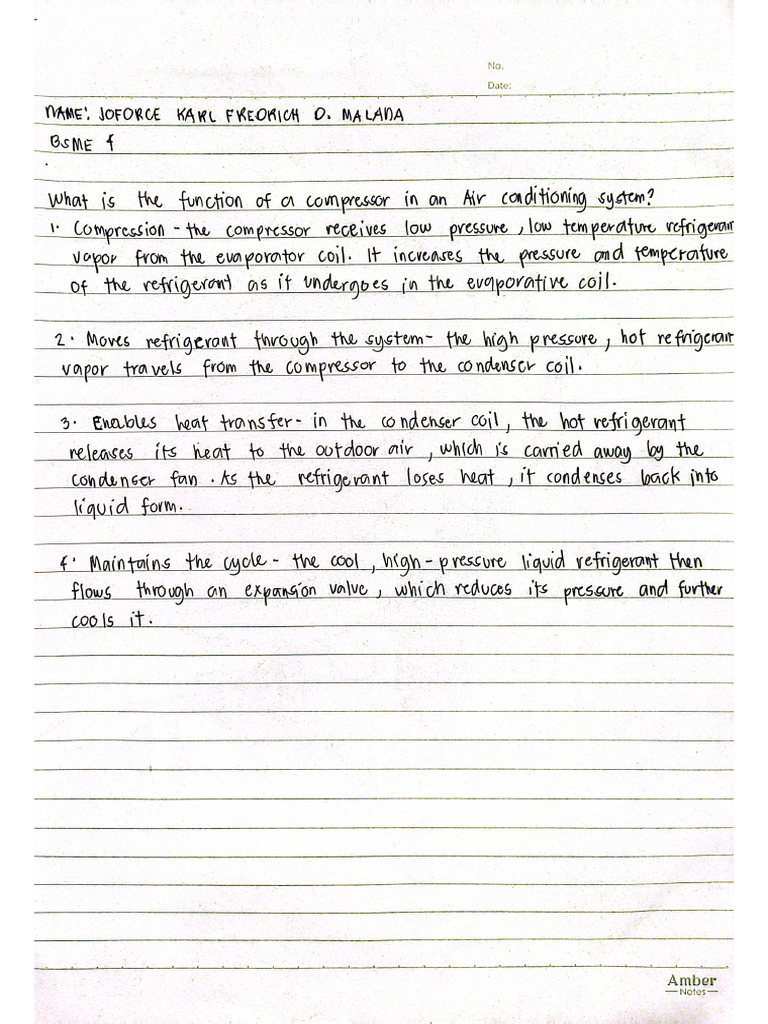 No.
Date:
NAME: JOFORCE KARL FREDRICH D. MALANA
BSME 4
What is the function of a compressor in an Air conditioning system?
1. Compression - the compressor receives low pressure, low temperature refrigerant
vapor from the evaporator coil. It increases the pressure and temperature
of the refrigerant as it undergoes in the evaporative coil.
2. Moves refrigerant through the system - the high pressure, hot refrigerant
vapor travels from the compressor to the condenser coil.
3. Enables heat transfer - in the condenser coil, the hot refrigerant
releases its heat to the outdoor air, which is carried away by the
condenser fan. As the refrigerant loses heat, it condenses back into
liquid form.
4. Maintains the cycle - the cool, high-pressure liquid refrigerant then
flows through an expansion valve, which reduces its pressure and further
cools it.
Amber
Notes